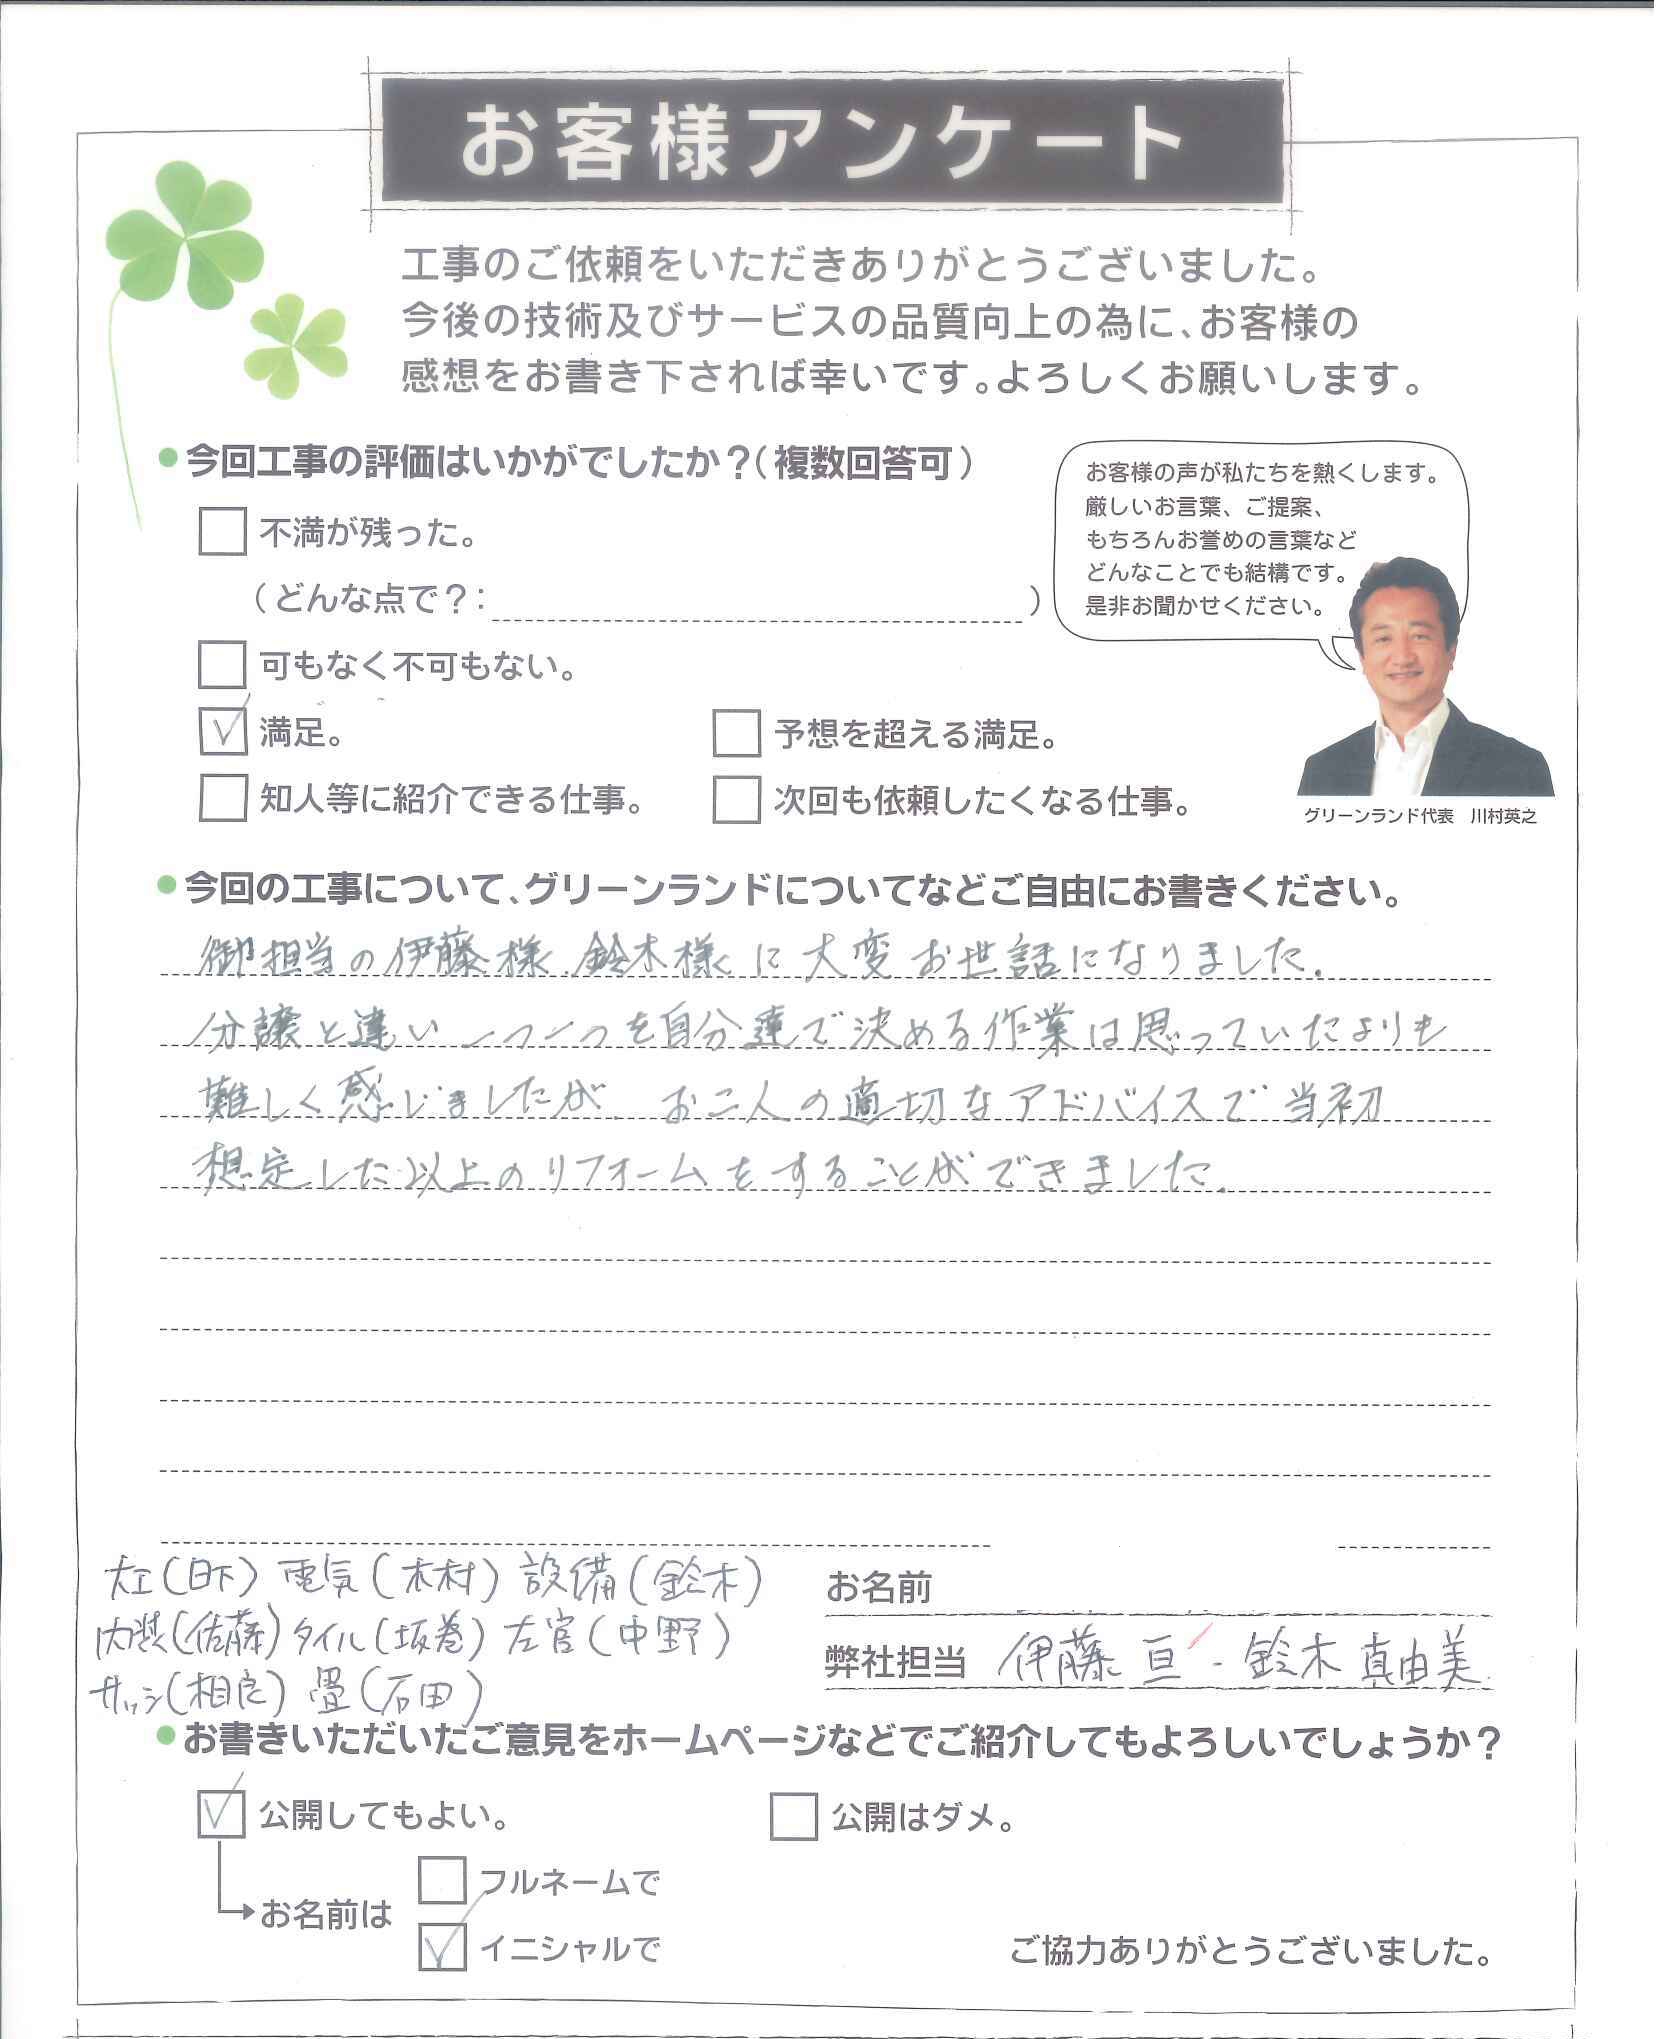 お客様アンケート
工事のご依頼をいただきありがとうございました。
今後の技術及びサービスの品質向上の為に、お客様の
感想をお書き下されば幸いです。よろしくお願いします。
●今回工事の評価はいかがでしたか？（複数回答可）
不満が残った。
（どんな点で？： ）
可もなく不可もない。
満足。
予想を超える満足。
知人等に紹介できる仕事。
次回も依頼したくなる仕事。
お客様の声が私たちを熱くします。
厳しいお言葉、ご提案、
もちろんお誉めの言葉など
どんなことでも結構です。
是非お聞かせください。
グリーンランド代表 川村英之
●今回の工事について、グリーンランドについてなどご自由にお書きください。
御担当の伊藤様、鈴木様に大変お世話になりました。
分譲と違い一つ一つを自分達で決める作業は思っていたよりも
難しく感じましたが、お二人の適切なアドバイスで当初
想定した以上のリフォームをすることができました。
大工（日下）電気（木村）設備（鈴木）
内装（佐藤）タイル（坂巻）左官（中野）
サッシ（相良）畳（石田）
お名前
弊社担当 伊藤 亘・鈴木 真由美
●お書きいただいたご意見をホームページなどでご紹介してもよろしいでしょうか？
公開してもよい。
公開はダメ。
お名前は
フルネームで
イニシャルで
ご協力ありがとうございました。